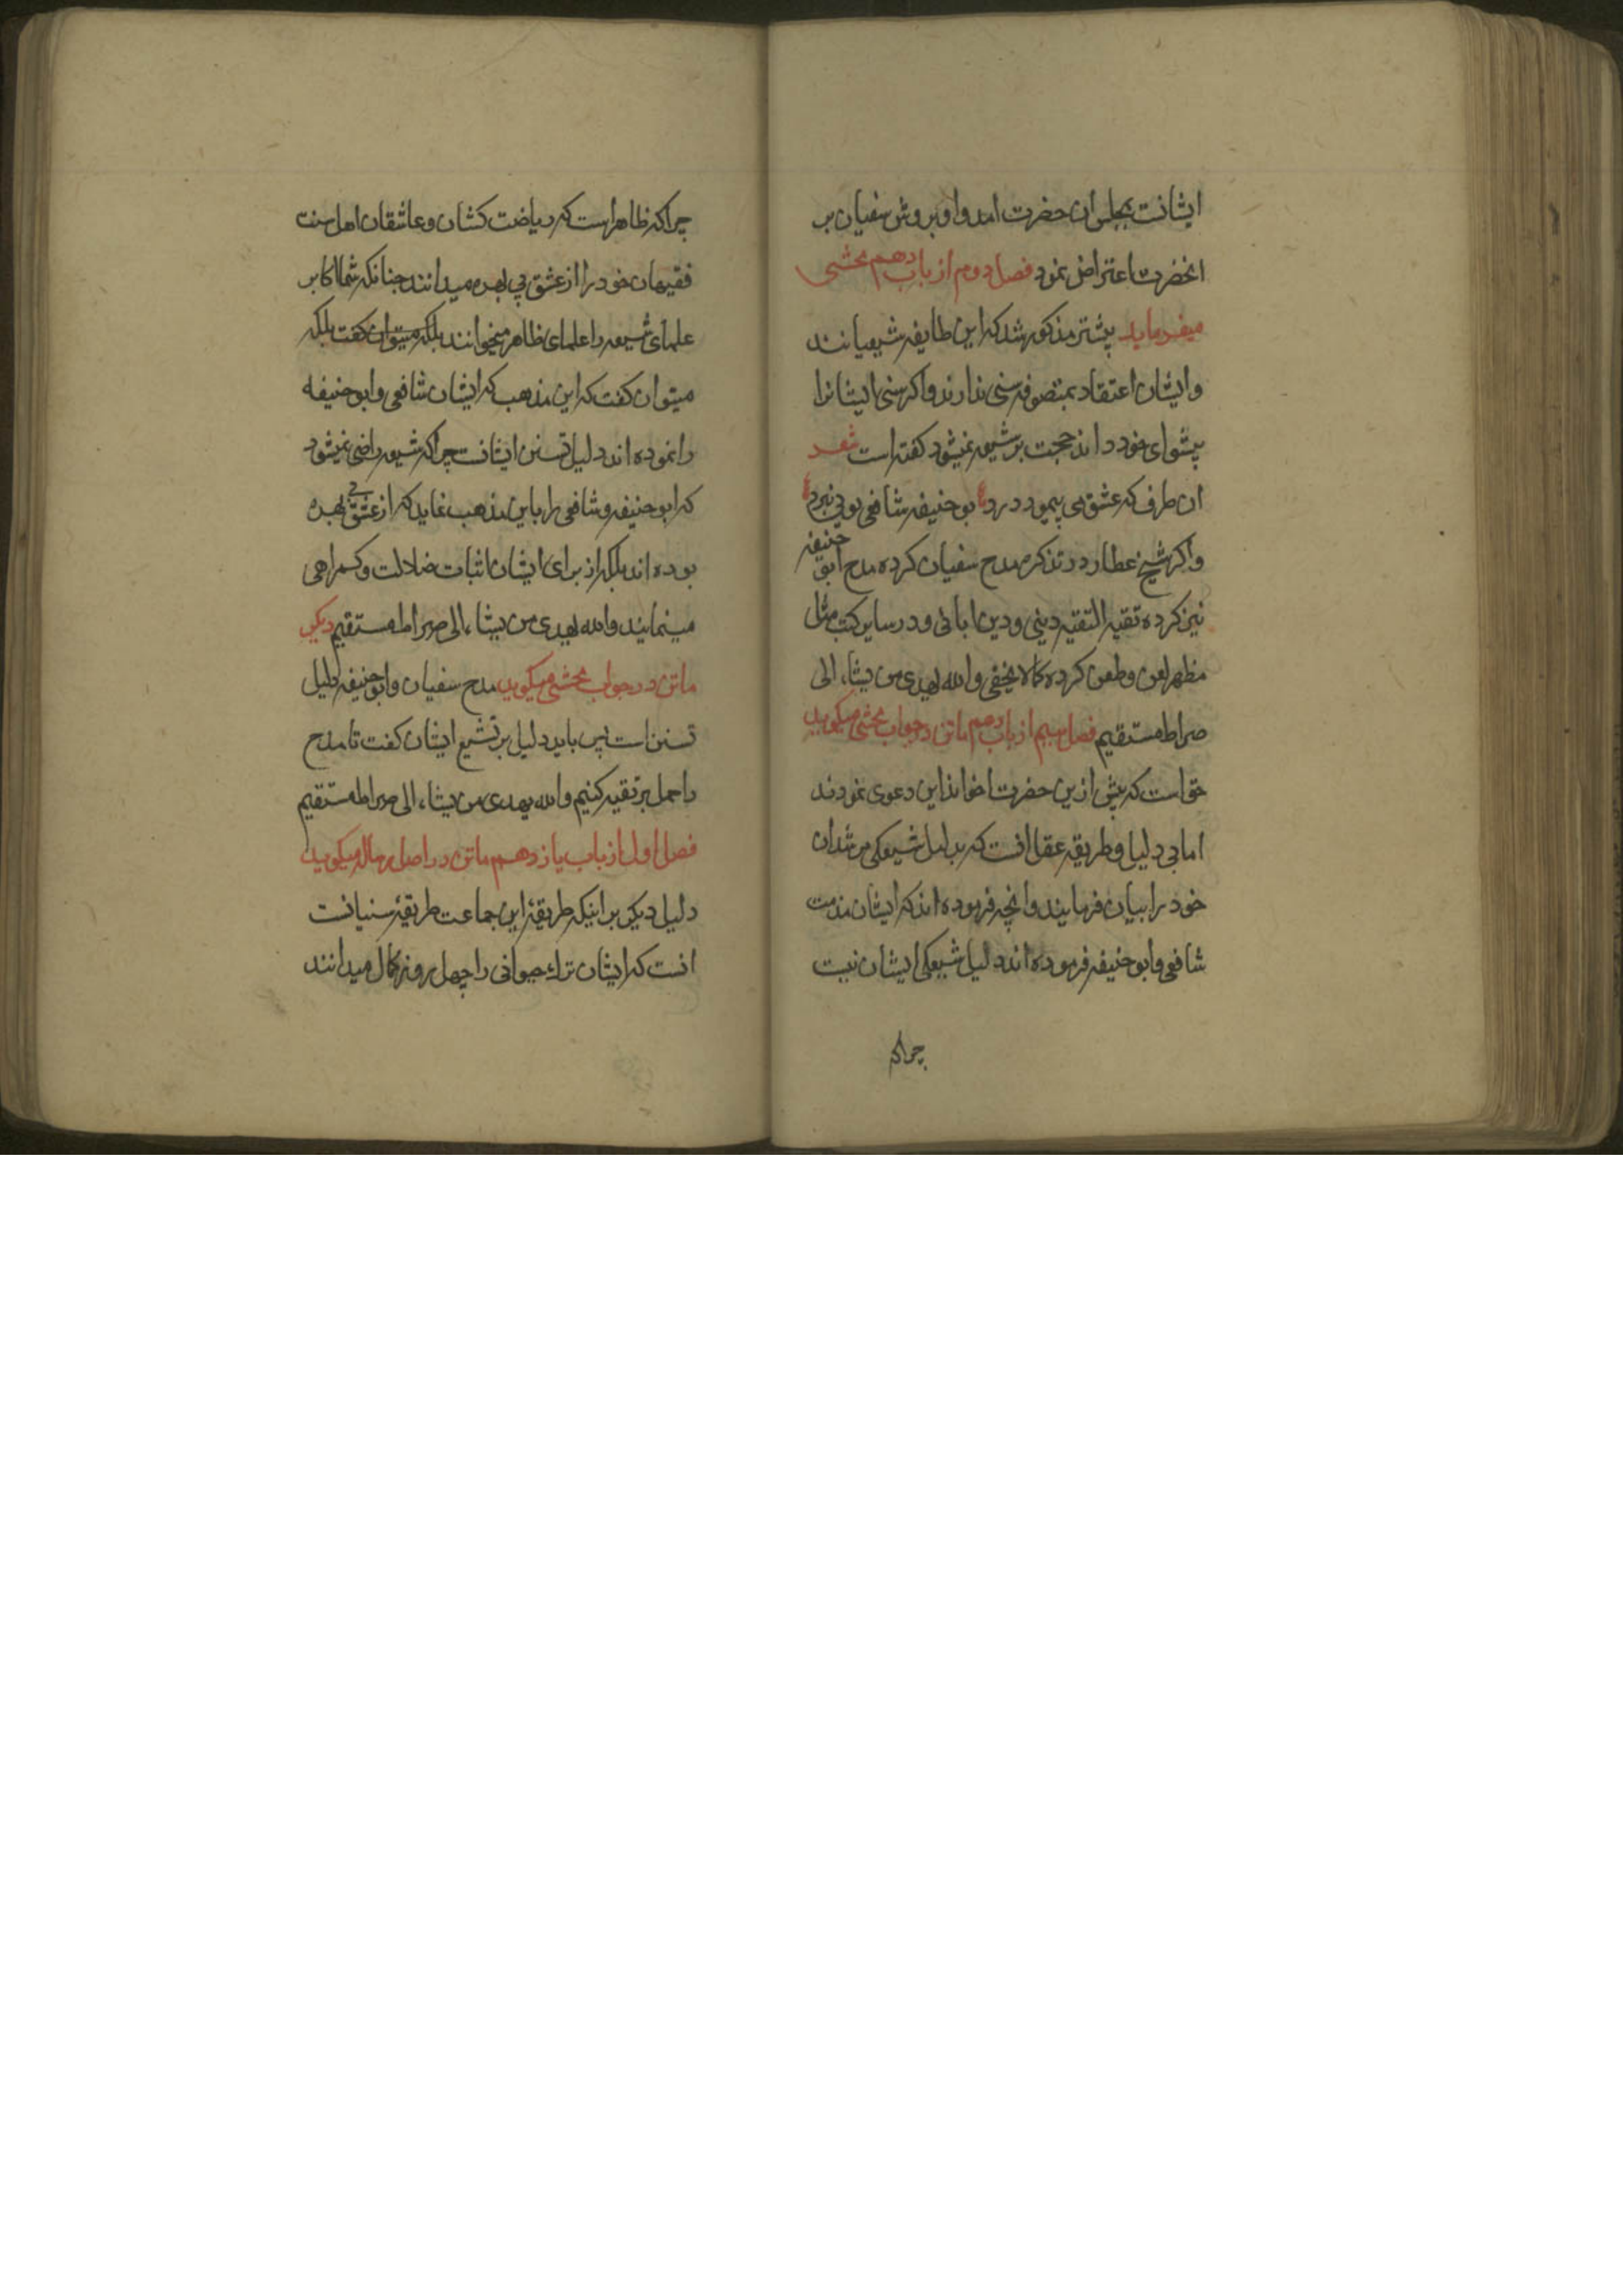 ایشانت بمجلس ان حضرت امد و او بروش سفیان بر
انحضرت اعتراض نمود فصل دوم از باب دهم محشی
میفرماید پیشتر مذکور شد که این طایفه شیعیانند
و ایشان اعتقاد بمتصوفه سنی ندارند و اکر سنی ایشانرا
پیشوای خود داند حجت بر شیعه نمیشود کفته است شعر
ان طرف که عشق می پیمود درد بو حنیفه شافعی بویی نبرد
و اکر شیخ عطار در تذکره مدح سفیان کرده مدح ابو حنیفه
نیز کرده تقیه التقیه دینی و دین ابائی و در سایر کتب مثل
مظهر لعن و طعن کرده کما لا یخفی و الله یهدی من یشاء الی
صراط مستقیم فصل سیم از باب دهم ماتن در جواب محشی میکوید
حق است که پیش ازین حضرت اخوند این دعوی نمودند
اما بی دلیل و طریقه عقلا انست که بدلیل شیعکی مرشدان
خود را بیان فرمایند و انچه فرموده اند که ایشان مذمت
شافعی و ابو حنیفه فرموده اند دلیل شیعکی ایشان نیست
چراکه
چراکه ظاهر است که ریاضت کشان و عاشقان اهل سنت
فقیهان خود را از عشق بی بهره میدانند چنانکه شما اکابر
علمای شیعه را علمای ظاهر میخوانند بلکه میتوان کفت بلکه
میتوان کفت که این مذهب که ایشان شافعی و ابو حنیفه
را نموده اند دلیل تسنن ایشانست چراکه شیعه راضی نمیشود
که ابو حنیفه و شافعی را باین مذهب نماید که از عشق بی بهره
بوده اند بلکه از برای ایشان اثبات ضلالت و کمراهی
مینمایند و الله یهدی من یشاء الی صراط مستقیم دیکر
ماتن در جواب محشی میکوید مدح سفیان و ابو حنیفه دلیل
تسنن است پس باید دلیل بر تشیع ایشان کفت تا مدح
را حمل بر تقیه کنیم و الله یهدی من یشاء الی صراط مستقیم
فصل اول از باب یازدهم ماتن در اصل رساله میکوید
دلیل دیکر بر اینکه طریقهٔ این جماعت طریقهٔ سنیانست
انست که ایشان ترک حیوانی را چهل روز کمال میدانند